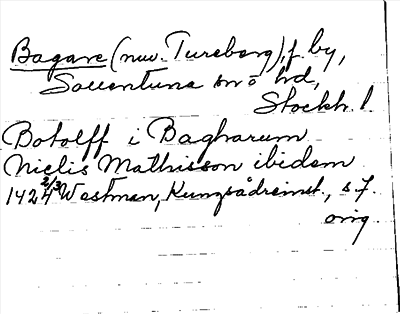 Bagare (nuv. Tureberg), f. by,
Sollentuna sn o hd,
Stockh. l.
Botolff i Bagharum
Nielis Mathisson ibidem
1424 2/3 Westman, Kungsådreinst., s. 7.
orig.